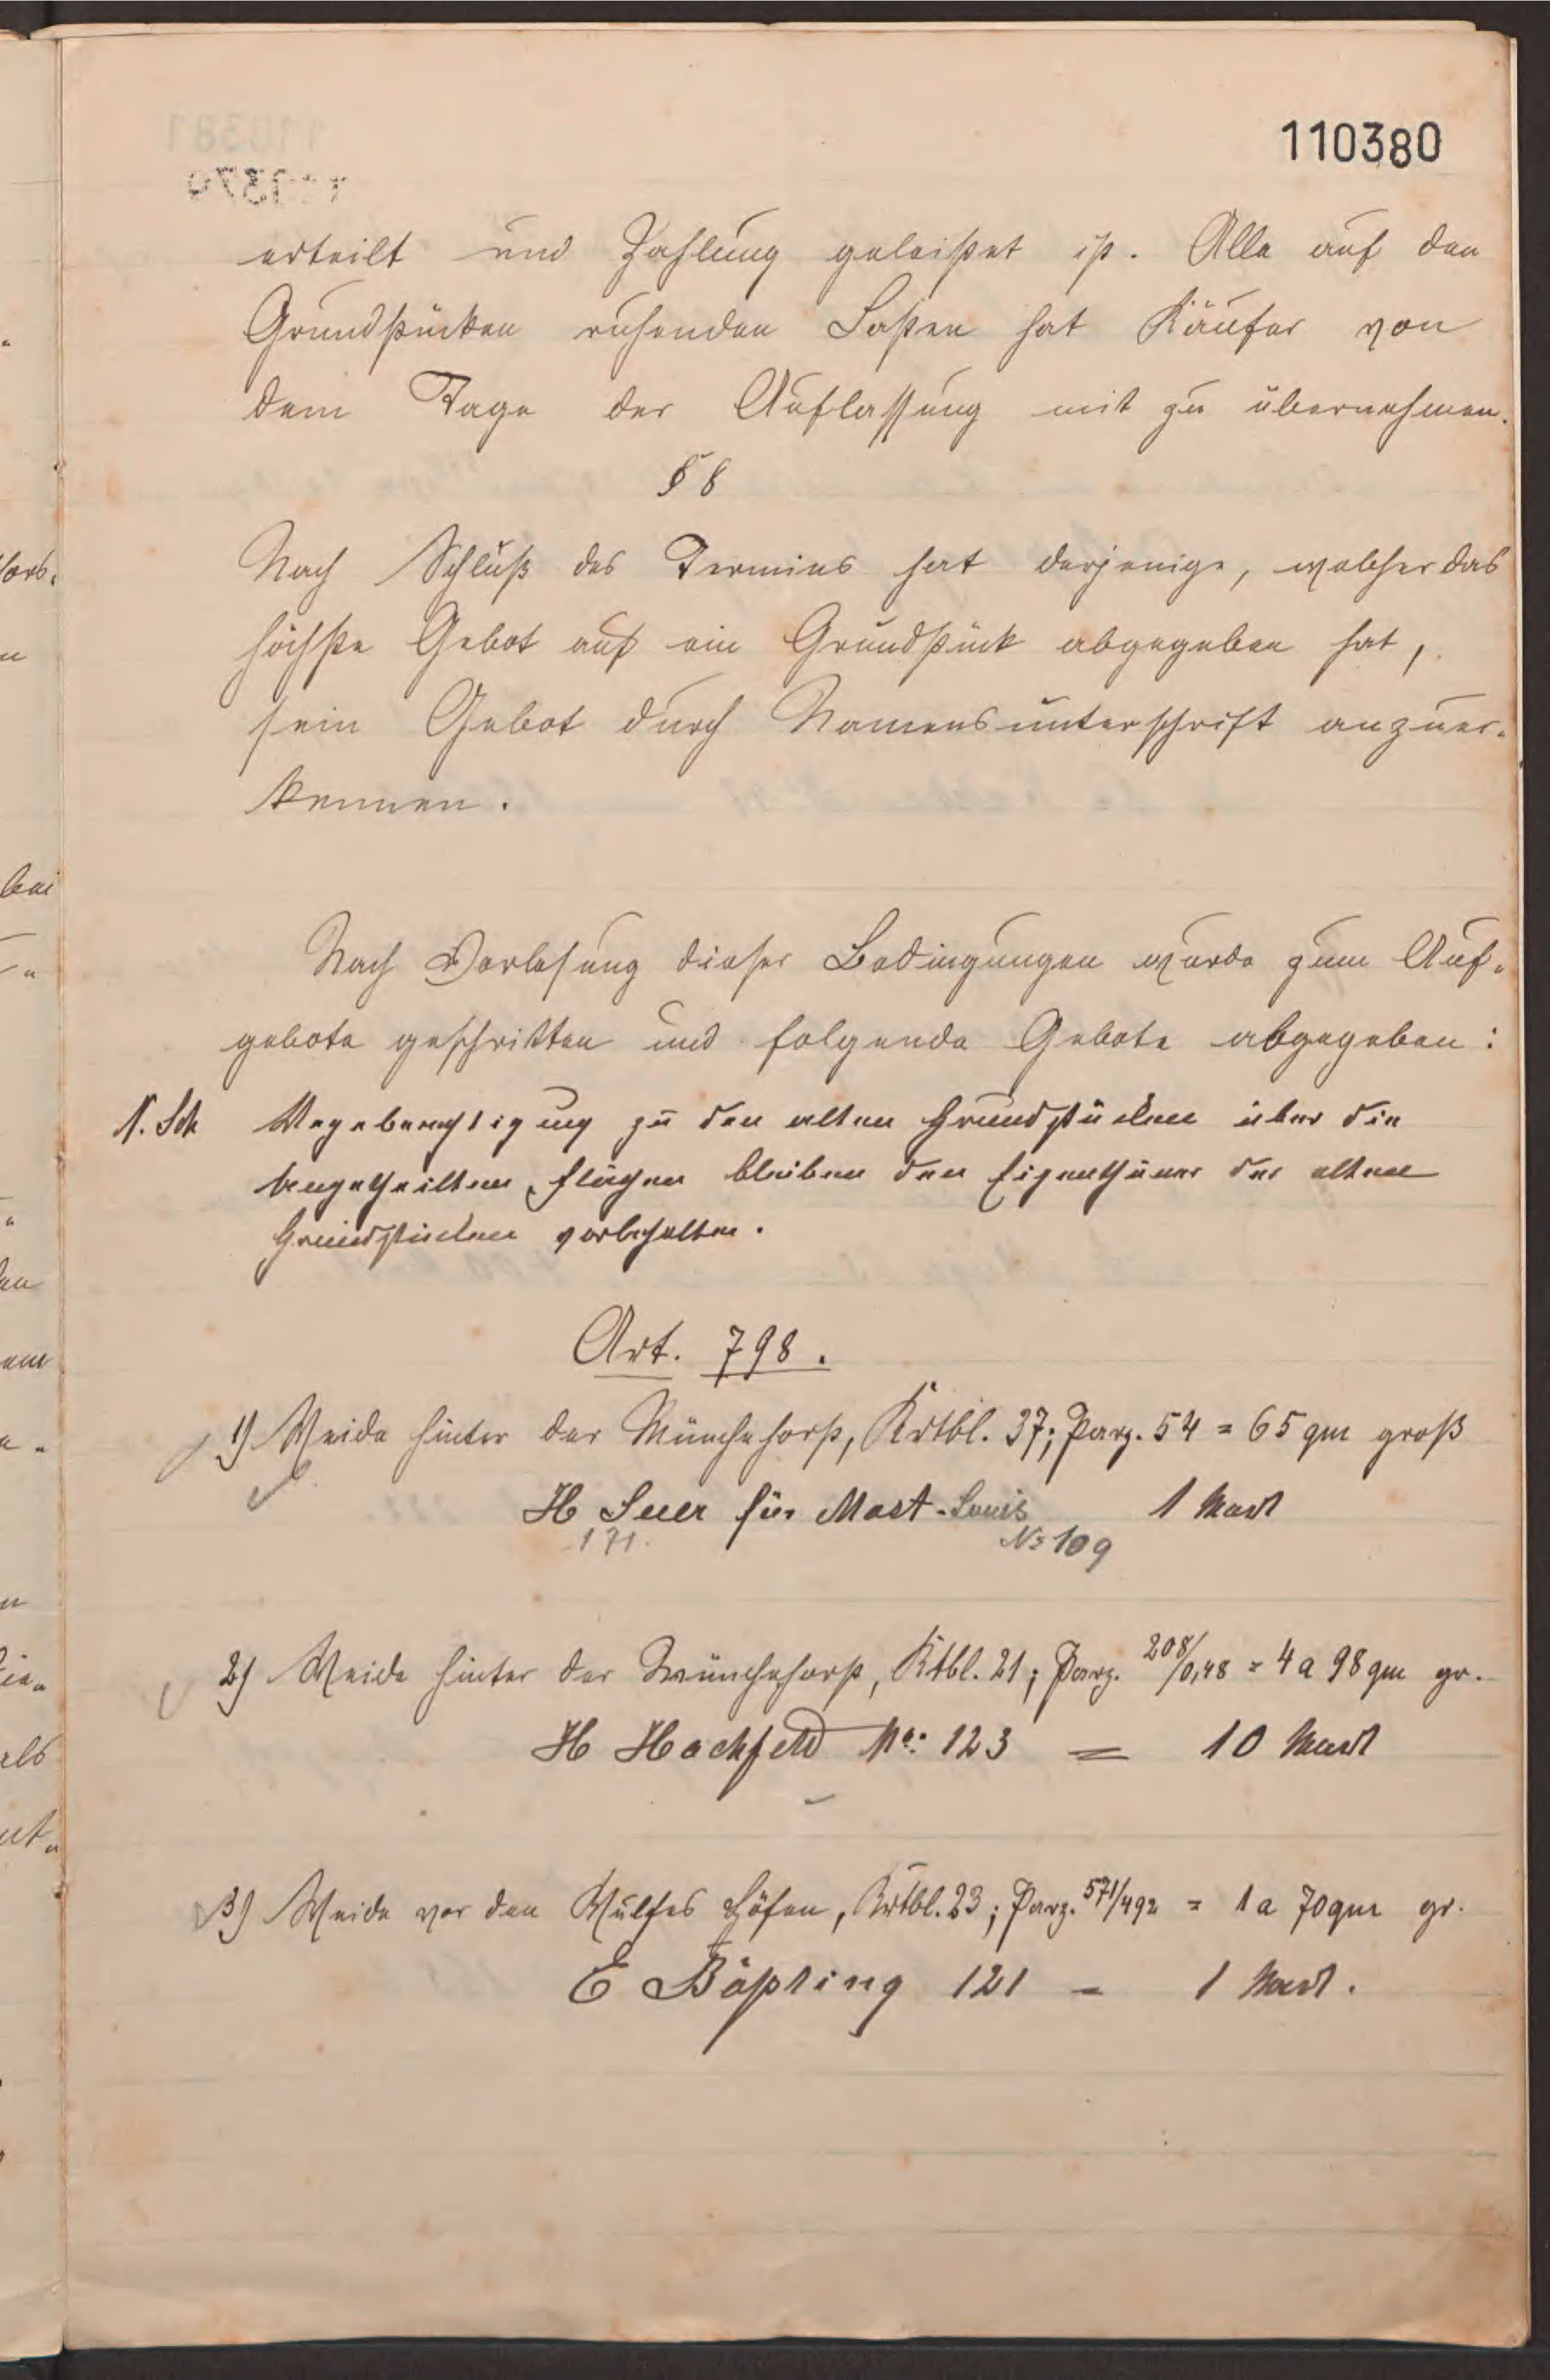 110380
erteilt und Zahlung geleistet ist. Alle auf den
Grundstücken ruhenden Lasten hat Käufer von
dem Tage der Auflassung mit zu übernehmen.
§ 8
Nach Schluß des Termins hat derjenige, welcher das
höchste Gebot auf ein Grundstück abgegeben hat,
sein Gebot durch Namensunterschrift anzuer-
kennen.
Nach Vorlesung dieser Bedingungen wurde zum Auf-
gebote geschritten und folgende Gebote abgegeben:
N. Sch Wegeberechtigung zu den alten Grundstücken über die
Flächen bleiben den Eigenthümer der alten
Grundstücken vorbehalten.
Art. 798.
1) Weide hinter der Münchehorst, Krtbl. 37; Parz. 54 = 65 qm groß
H Suer für Mast-Louis 1 Mark
171. No 109
2) Weide hinter der Münchehorst, Ktbl. 21; Parz. 208/0,48 = 4 a 98 qm gr.
H Hachfeld No: 123 = 10 Mark
3) Weide vor den Wulfes Höfen, Krtbl. 23; Parz. 571/492 = 1 a 70 qm gr.
E Bößling 121 - 1 Mark.